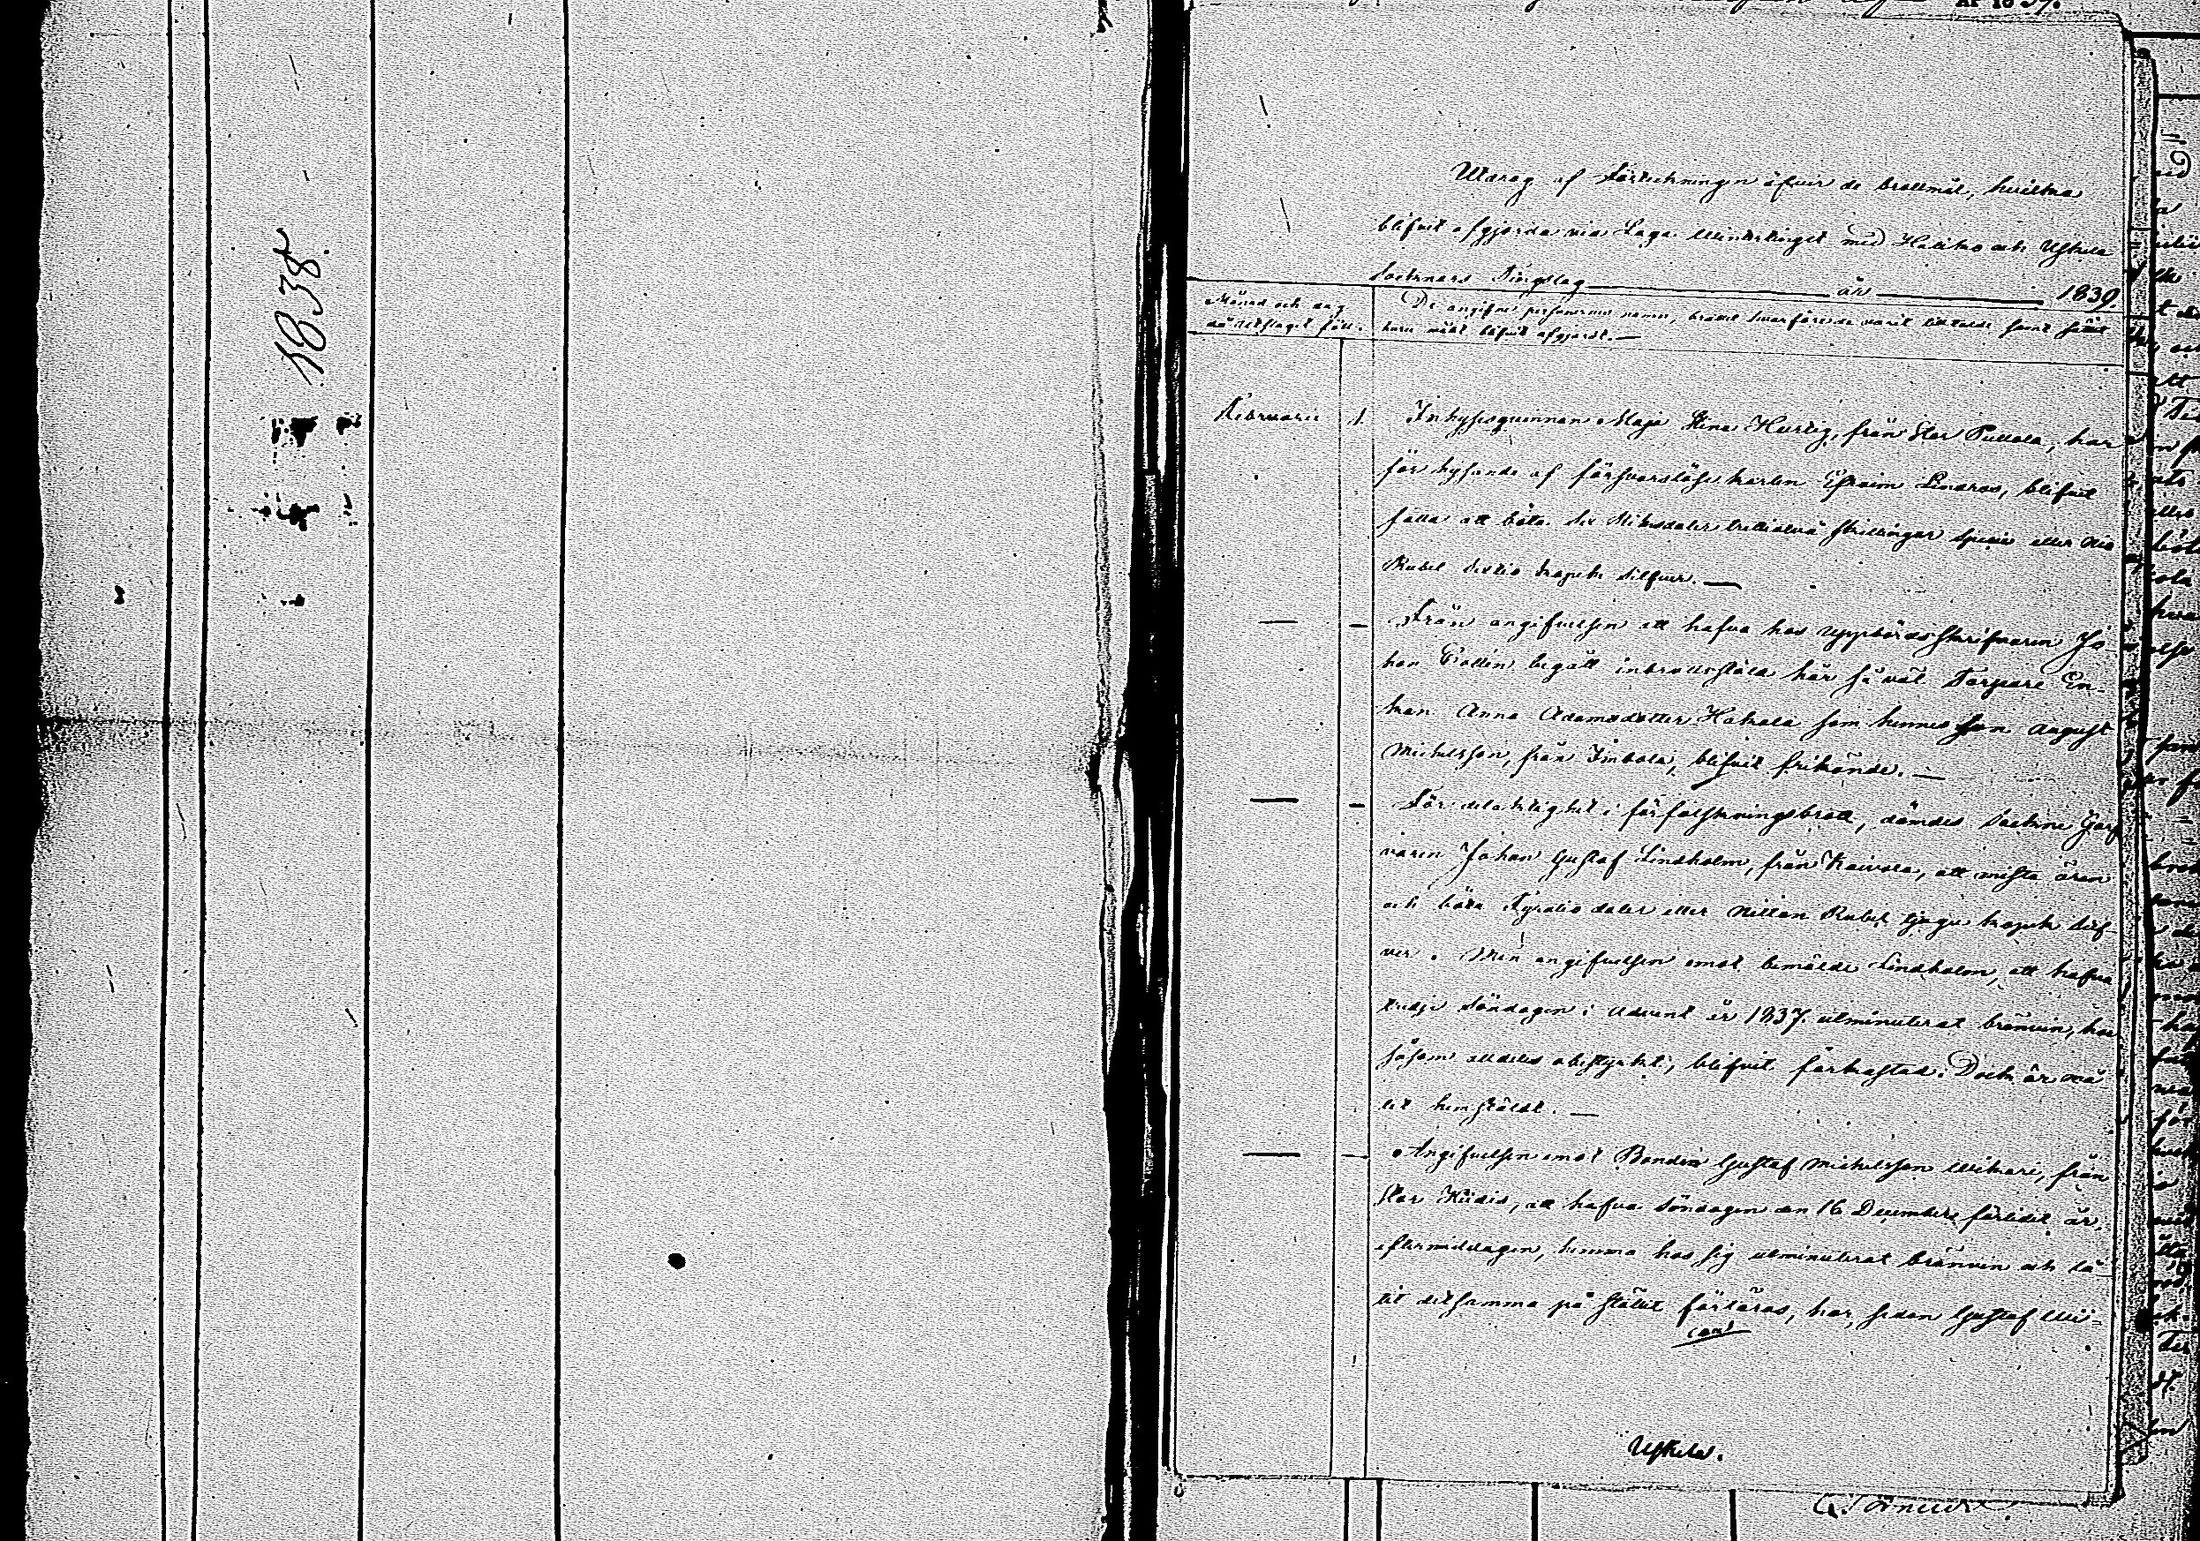 1838.
AF 1839.
Utdrag af Förteckningen öfver de brottmål, hvilka
blifvit afgjorda vid Laga Wintertinget med Halikko och Uskela
Socknars Tingslag år 1839
Månad och dag
då utslaget föll.
De angifne personernes namn, brottet hvarföre de varit tilltalde samt sättet
huru målet blifvit afgjordt. —
Februarii 1. Inhysesqvinnan Maja Stina Hurtig, från Stor Pullola, har
för hysande af försvarslöse karlen Efraim Lindroos, blifvit
fälld att böta Sex Riksdaler trettiotvå skillingar Specie eller nio
Rubel sextio kopek silfver. —
— — Från angifvelsen att hafva hos Uppbördsskrifvaren Jo-
han Collin begått inbrottsstöld har så väl Torpare En-
kan Anna Adamsdotter Hakala som hennes son August
Michelsson, från Inkola, blifvit frikände. —
— — För delaktighet i förfalskningsbrott, dömdes Sockne Garf
varen Johan Gustaf Lindholm, från Kaivola, att mista äran
och böta Fyratio daler eller Nitton Rubel tjugu kopek silf-
ver. Men angifvelsen emot bemälde Lindholm, att hafva
tredje Söndagen i Advent år 1837. utminuterat bränvin, har
såsom alldeles obestyrkt, blifvit förkastad. Dock är må
let hemstäldt. —
— — Angifvelsen emot Bonden Gustaf Michelsson Wikari, från
Stor Hiidis, att hafva Söndagen den 16 December förledet år,
eftermiddagen, hemma hos sig utminuterat bränvin och lå-
tit detsamma på stället förtäras, har, sedan Gustaf
Uskela.